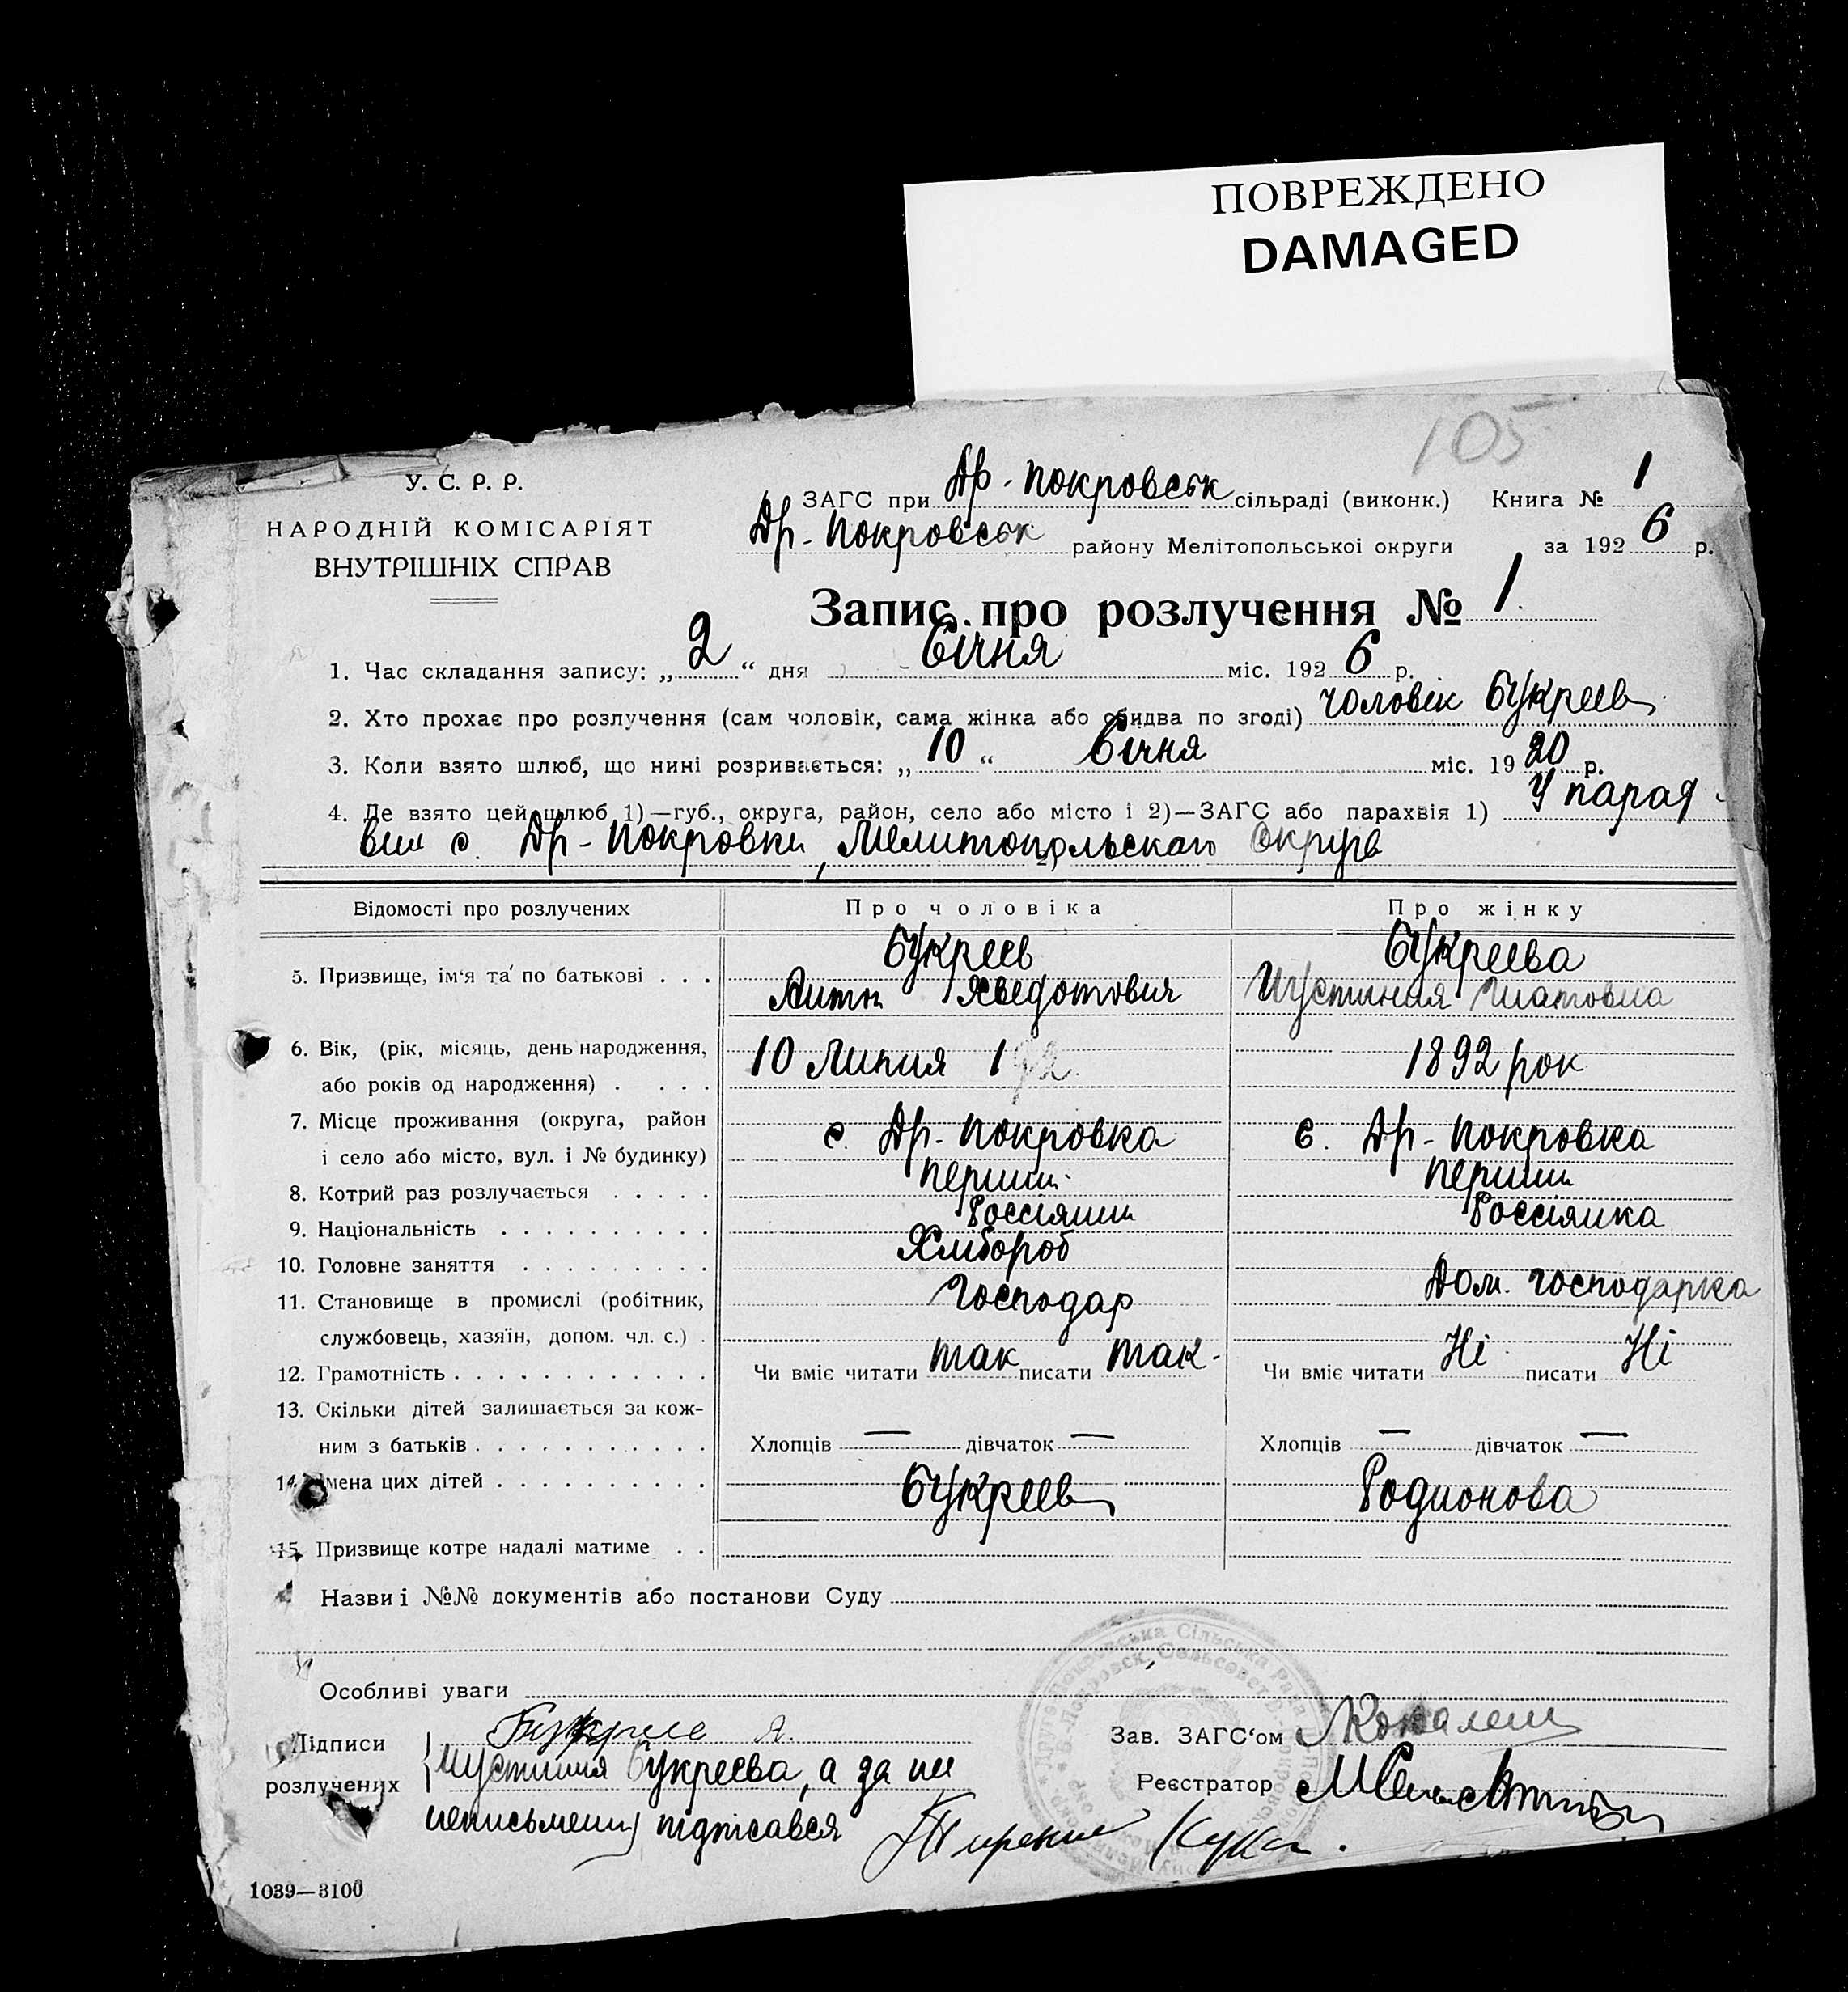 ПОВРЕЖДЕНО
DAMAGED
105
У. С. Р. Р.
НАРОДНІЙ КОМІСАРІЯТ
ВНУТРІШНІХ СПРАВ
ЗАГС при Др-Покровськ сільраді (виконк.) Книга № 1
Др-Покровськ району Мелітопольської округи за 1926 р.
Запис про розлучення № 1.
1. Час складання запису: „2“ дня Січня міс. 1926 р.
2. Хто прохає про розлучення (сам чоловік, сама жінка або обидва по згоді) чоловік Букреев
3. Коли взято шлюб, що нині розривається: „10“ Січня міс. 1920 р.
4. Де взято цей шлюб 1)—губ., округа, район, село або місто і 2)—ЗАГС або парахвія 1) У парах-
вии с. Др-Покровки, Мелитопольскаго Округа
2)
Відомості про розлучених Про чоловіка Про жінку
5. Призвище, ім'я та по батькові . . . Букреев Букреева
Антон Хведотович Иустиния
6. Вік, (рік, місяць, день народження, 10 Липня 1892 рок
або років од народження) . . . .
7. Місце проживання (округа, район с. Др-Покровка с. Др-Покровка
і село або місто, вул. і № будинку)
8. Котрий раз розлучається . . . . . перший перший
9. Національність . . . . . . . . . . Россіянин Россіянка
10. Головне заняття . . . . . . . . . Хлібороб
11. Становище в промислі (робітник, Господар Дом. господарка
службовець, хазяїн, допом. чл. с.) .
12. Грамотність . . . . . . . . . . . . Чи вміє читати так писати так Чи вміє читати Ні писати Ні
13. Скільки дітей залишається за кож-
ним з батьків . . . . . . . . . . . Хлопців — дівчаток — Хлопців — дівчаток —
14. Імена цих дітей . . . . . . . . . . Букреев Родионова
15. Призвище котре надалі матиме . .
Назви і №№ документів або постанови Суду
Особливі уваги
Підписи
розлучених
Букреев А.
Иустиния Букреева, а за неі
неписьмену підписався
Зав. ЗАГС'ом
Реєстратор
1039—3100